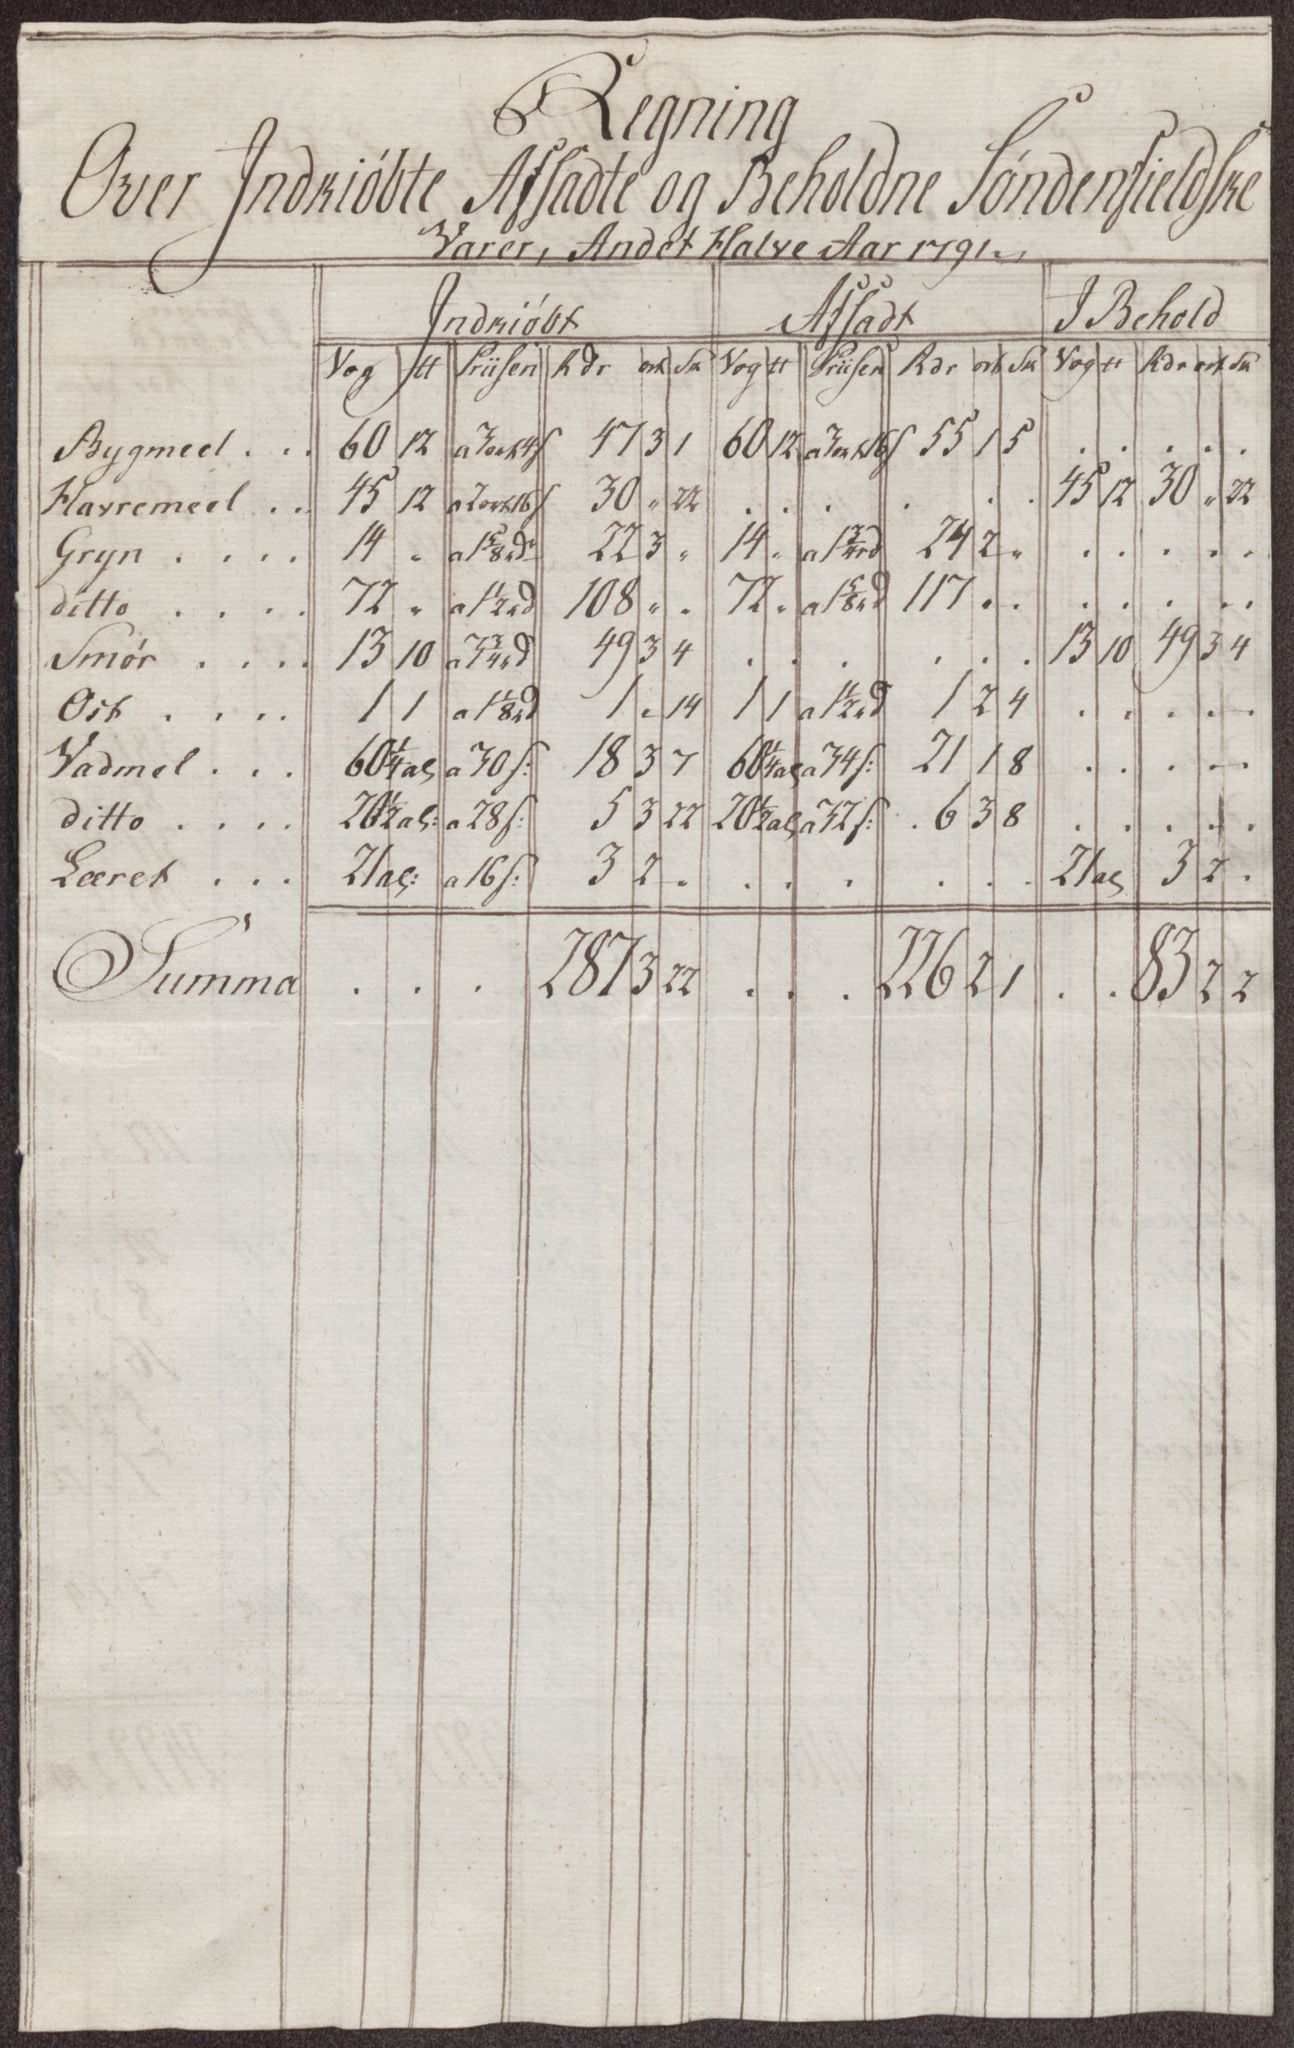 Regning
Over Indkiöbte Afsadte og Beholdne Söndenfieldske
Varer, Andet Halve Aar 1791
Indkiöbt Afsadt I Behold
Vog tt Priisen Rdr ort Sk Vog tt Priisen Rdr ort Sk Vog tt Rdr ort Sk
Bygmeel . . . 60 12 a 3ort4ſ 47 3 1 60 12 a 3ort16ſ 55 1 5 . . . . .
Havremeel . . 45 12 a 2ort16ſ 30 " 22 . . . . . . 45 12 30 " 22
Gryn . . . . 14 " a 1 5/8 rd 22 3 " 14 " a 1 3/4 rd 24 2 " . . . . .
ditto . . . . 72 " a 1 1/2 rd 108 " . 72 " a 1 5/8 rd 117 . . . . . . .
Smör . . . . 13 10 a 3 3/4 rd 49 3 4 . . . . . . 13 10 49 3 4
Ost . . . . 1 1 a 1 1/8 rd 1 " 14 1 1 a 1 1/2 rd 1 2 4 . . . . .
Vadmel . . . 60 1/4 al a 30 ſ: 18 3 7 60 1/4 al a 34 ſ: 21 1 8 . . . . .
ditto . . . . 20 1/2 al: a 28 ſ: 5 3 22 20 1/2 al a 32 ſ: . 6 3 8 . . . . .
Læret . . . 21 al: a 16 ſ: 3 2 . . . . . . . 21 al 3 2 .
Summa . . . 287 3 22 . . . 226 2 1 . . 83 2 2